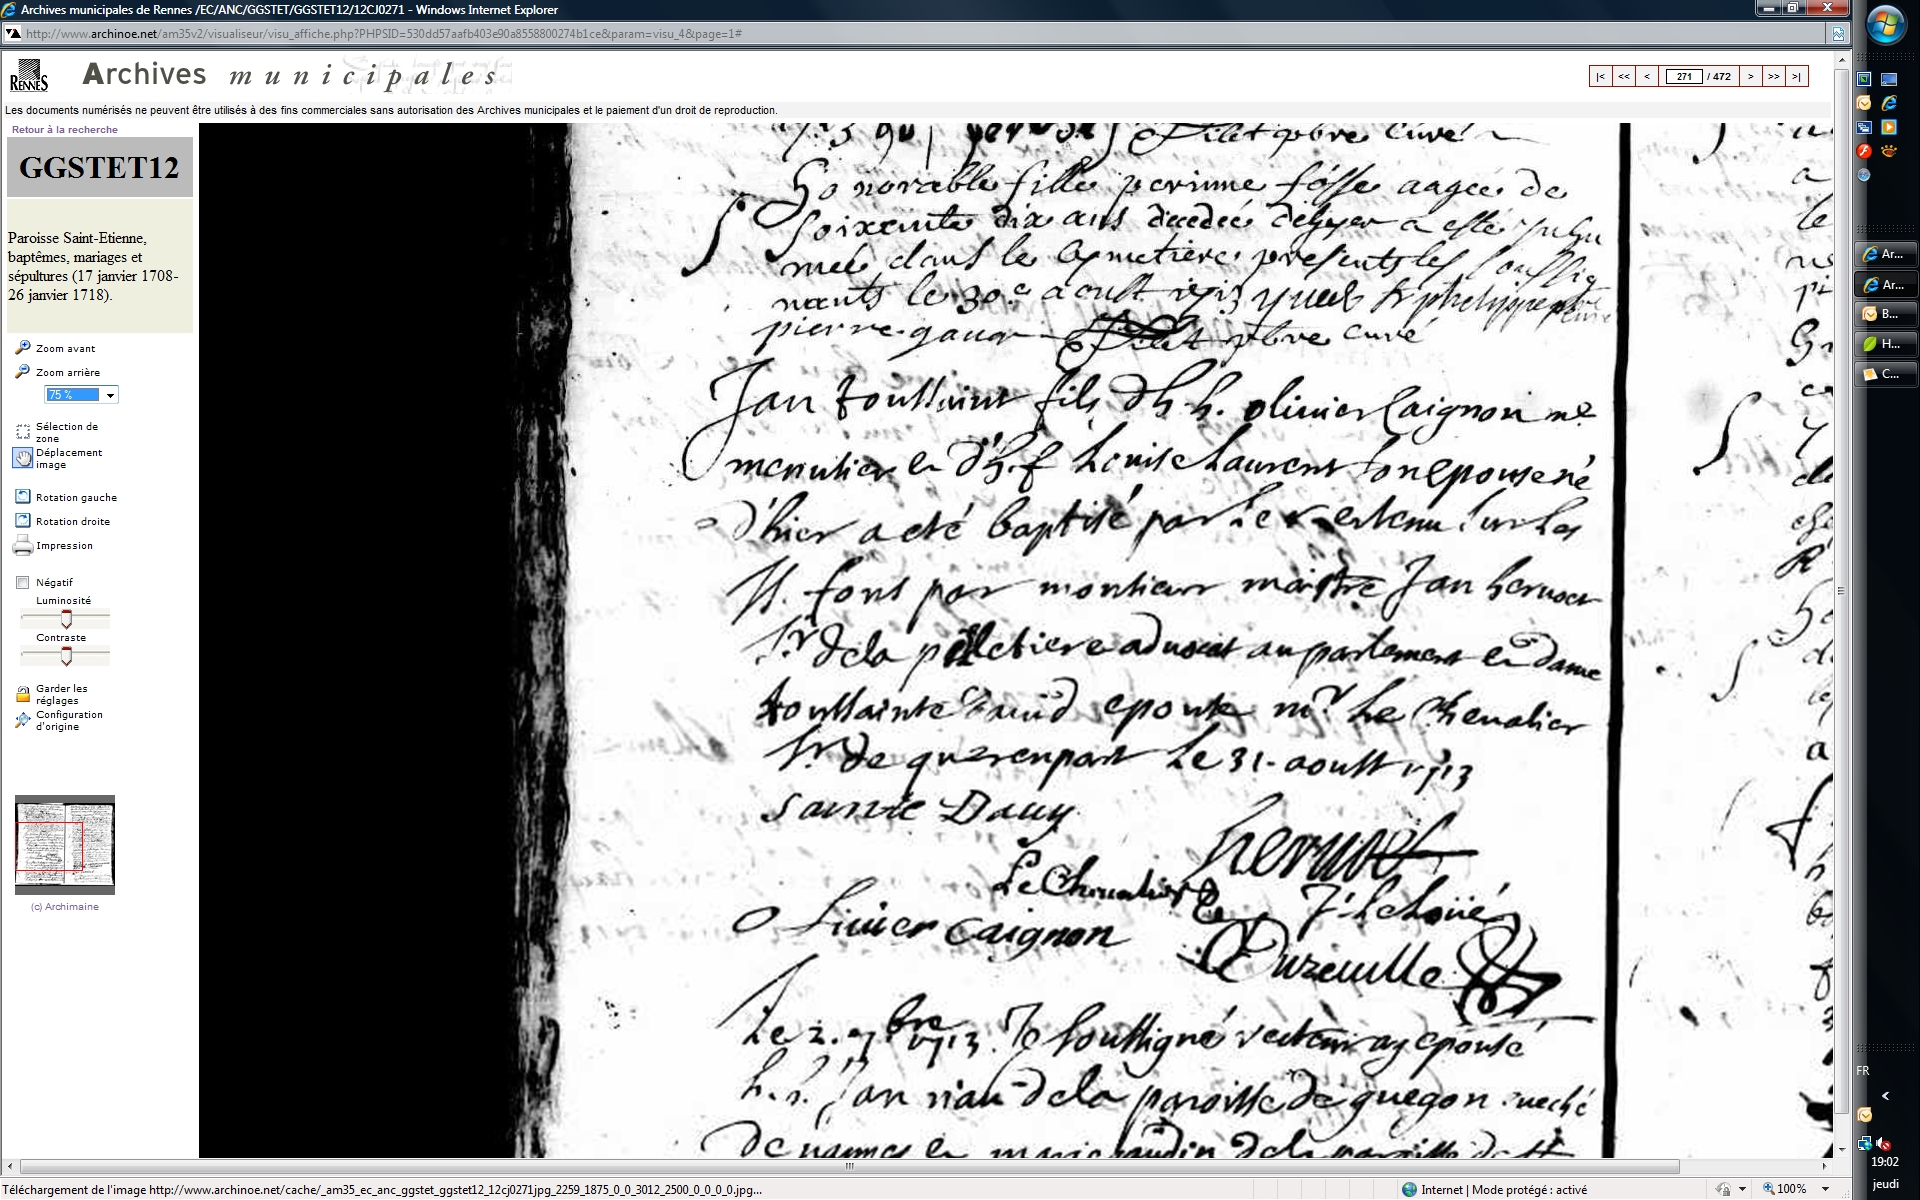 Archives municipales de Rennes /EC/ANC/GGSTET/GGSTET12/12CJ0271 - Windows Internet Explorer
http://www.archinoe.net/am35v2/visualiseur/visu_affiche.php?PHPSID=530dd57aafb403e90a8558800274b1ce&param=visu_4&page=1#
RENNES
Archives municipales
|< << < 271 / 472 > >> >|
Les documents numérisés ne peuvent être utilisés à des fins commerciales sans autorisation des Archives municipales et le paiement d'un droit de reproduction.
Retour à la recherche
GGSTET12
Paroisse Saint-Etienne,
baptêmes, mariages et
sépultures (17 janvier 1708-
26 janvier 1718).
Zoom avant
Zoom arrière
75 %
Sélection de
zone
Déplacement
image
Rotation gauche
Rotation droite
Impression
Négatif
Luminosité
Contraste
Garder les
réglages
Configuration
d'origine
(c) Archimaine
pbre curé
honorable fille perinne fosse aagée de
soixente dix ans decedée dehyer a esté inhu
mée dans le cymetiere presents les soussig
nants le 30e aoust 1713
pierre gaua pbre curé
Jan toussaint fils d'h. h. olivier Caignon me
menusier et d'h. f. Louise Laurent son epouse né
d'hier a eté baptisé par le r et tenu sur les
St. fons par monsieur maistre Jan heruoet
Sr de la pelletiere aduocat au parlement et dame
toussainte epouse mr Le Chevalier
Sr. de querenpart Le 31. aoust 1713
sainte Dauy
heruoet
Le Chevalier
Olivier Caignon
Duzeuille
Le 2. 7bre 1713. Je soussigné recteur ay epousé
h. h. Jan riau de la paroisse de guegon eueché
de vannes et marie audin de la paroisse de st
Ar...
Ar...
B...
H...
C...
FR
19:02
jeudi
Téléchargement de l'image http://www.archinoe.net/cache/_am35_ec_anc_ggstet_ggstet12_12cj0271jpg_2259_1875_0_0_3012_2500_0_0_0_0.jpg...
Internet | Mode protégé : activé
100%